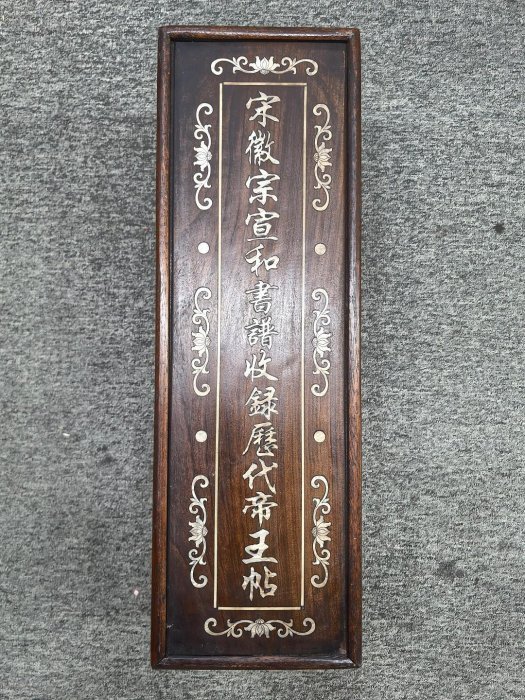 宋徽宗宣和書譜收録歷代帝王帖